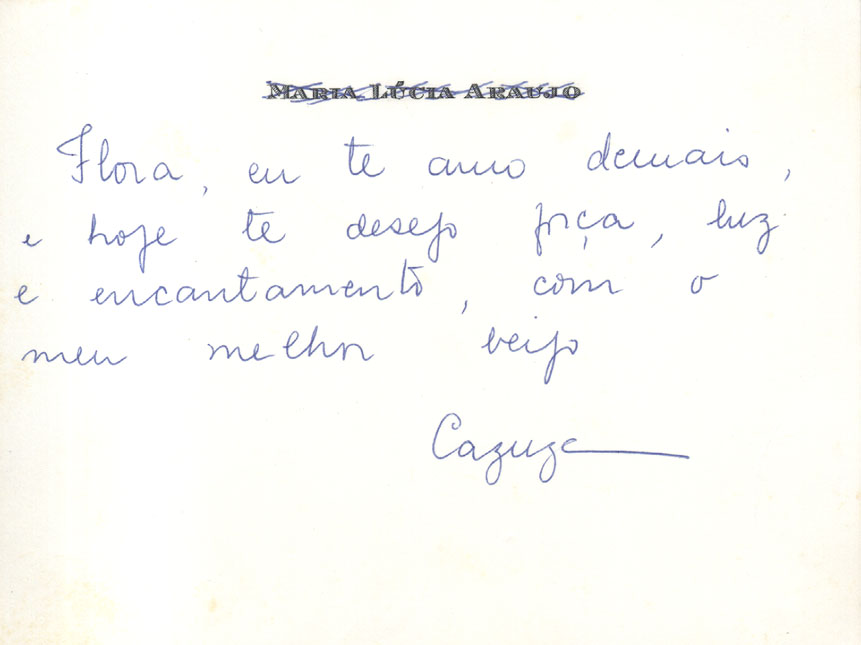 MARIA LÚCIA ARAUJO
Flora, eu te amo demais,
e hoje te desejo força, luz
e encantamento, com o
meu melhor beijo
Cazuza